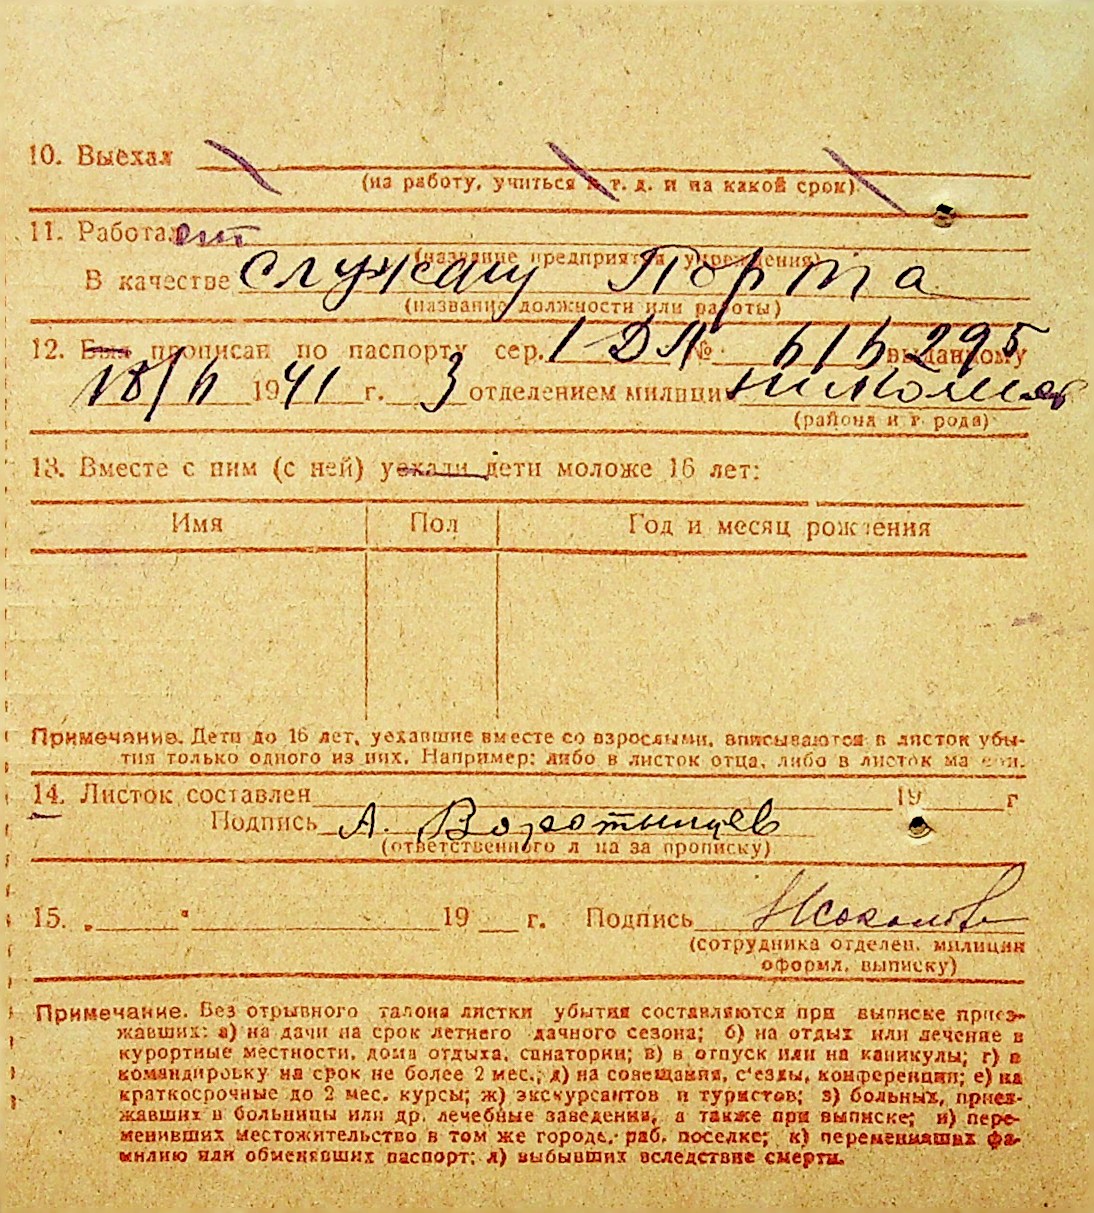 10. Выехал
(на работу, учиться и т. д. и на какой срок)
11. Работает
(название предприятия учреждения)
В качестве служащ Порта
(название должности или работы)
12. Был прописан по паспорту сер. I ДЛ № 616295 выданному
18/II 1941 г. 3 отделением милиции
(района и города)
13. Вместе с ним (с ней) уехали дети моложе 16 лет:
Имя Пол Год и месяц рождения
Примечание. Дети до 16 лет, уехавшие вместе со взрослыми, вписываются в листок убы-
тия только одного из них. Например: либо в листок отца, либо в листок матери.
14. Листок составлен 19 г
Подпись А. Воротынцев
(ответственного лица за прописку)
15. „ " 19 г. Подпись Соколов
(сотрудника отделен. милиции
оформл. выписку)
Примечание. Без отрывного талона листки убытия составляются при выписке приез-
жавших: а) на дачи на срок летнего дачного сезона; б) на отдых или лечение в
курортные местности, дома отдыха, санатории; в) в отпуск или на каникулы; г) в
командировку на срок не более 2 мес.; д) на совещания, с'езды, конференции; е) на
краткосрочные до 2 мес. курсы; ж) экскурсантов и туристов; з) больных, приез-
жавших в больницы или др. лечебные заведения, а также при выписке; и) пере-
менивших местожительство в том же городе, раб. поселке; к) переменивших фа-
милию или обменявших паспорт; л) выбывших вследствие смерти.